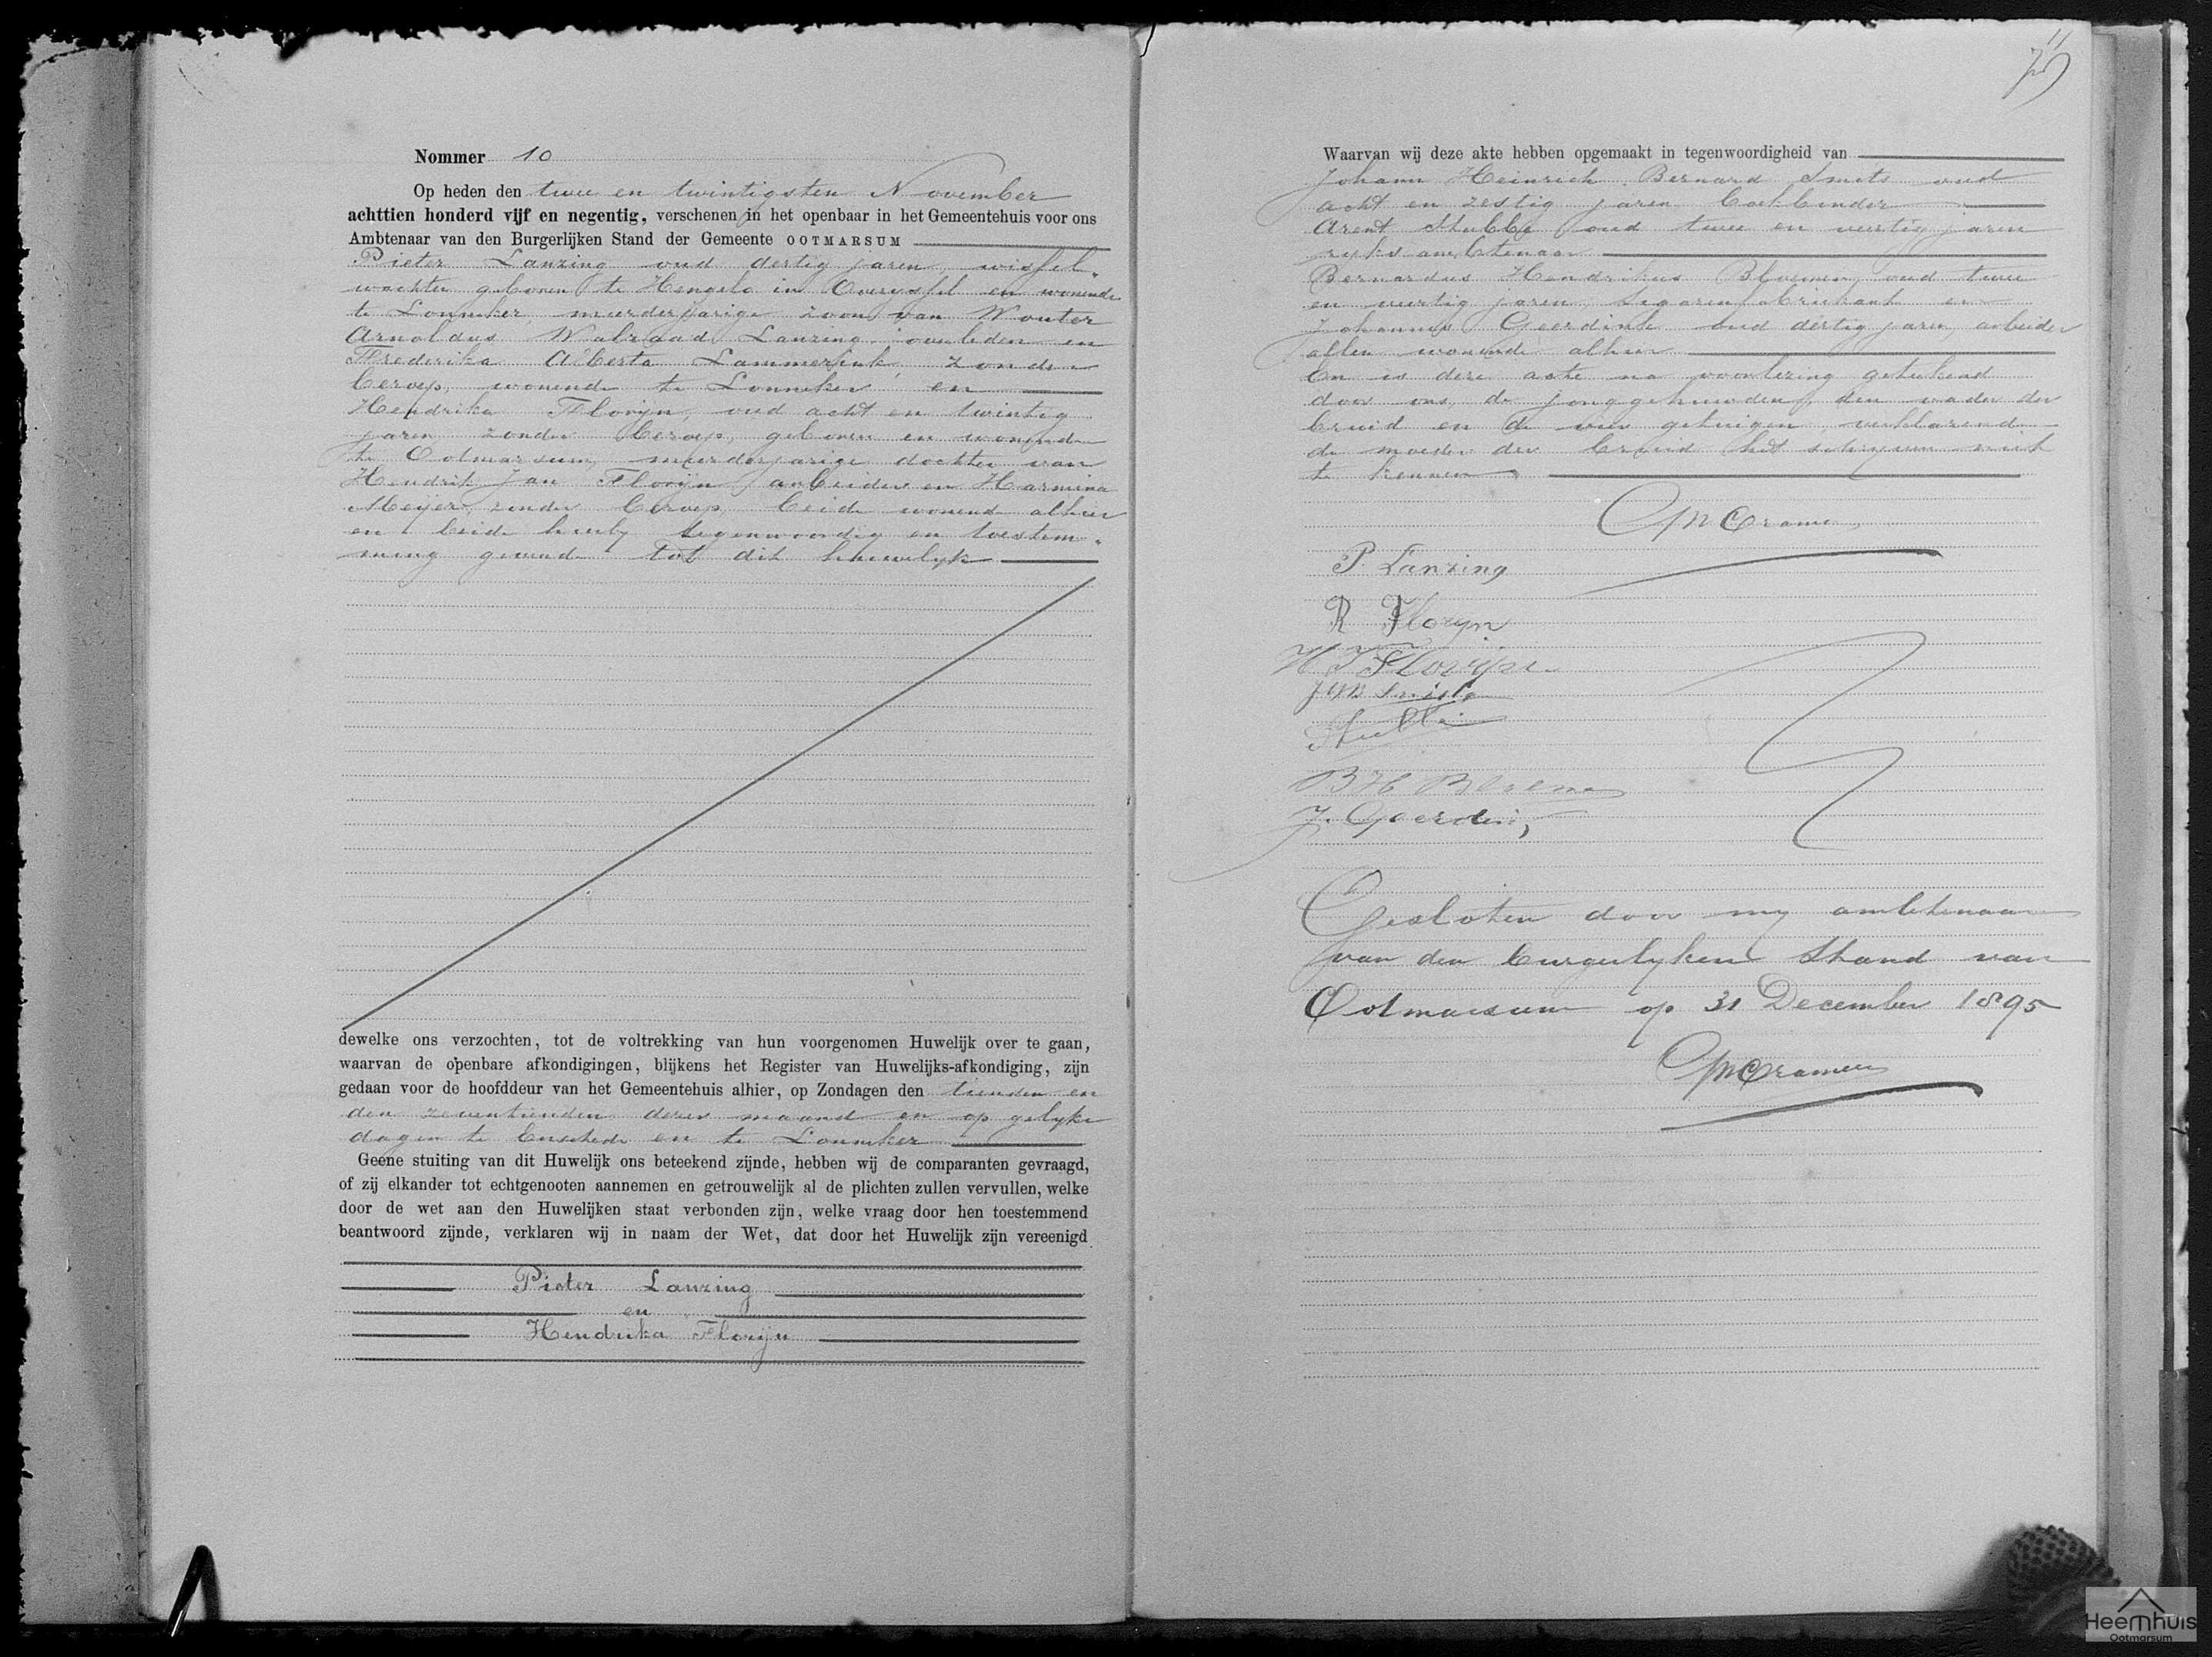 Nommer 10
Op heden den twee en twintigsten November
achttien honderd vijf en negentig, verschenen in het openbaar in het Gemeentehuis voor ons
Ambtenaar van den Burgerlijken Stand der Gemeente OOTMARSUM
Pieter Lanzing oud dertig jaren, wissel-
wachter geboren te Hengelo in Overyssel en wonende
te Lonneker, meerderjarige zoon van Wouter
Arnoldus Walraad Lanzing, overleden en
Frederika Alberta Lammerink, zonder
beroep, wonende te Lonneker en
Hendrika Florijn, oud acht en twintig
jaren, zonder beroep, geboren en wonende
te Ootmarsum, meerderjarige dochter van
Hendrik Jan Florijn, arbeider en Harmina
Meijer, zonder beroep, beide wonend alhier
en beide hierby tegenwoordig en toestem-
ming gevende tot dit huwelyk
dewelke ons verzochten, tot de voltrekking van hun voorgenomen Huwelijk over te gaan,
waarvan de openbare afkondigingen, blijkens het Register van Huwelijks-afkondiging, zijn
gedaan voor de hoofddeur van het Gemeentehuis alhier, op Zondagen den tienden en
den zeventienden dezer maand en op gelyke
dagen te Enschede en te Lonneker
Geene stuiting van dit Huwelijk ons beteekend zijnde, hebben wij de comparanten gevraagd,
of zij elkander tot echtgenooten aannemen en getrouwelijk al de plichten zullen vervullen, welke
door de wet aan den Huwelijken staat verbonden zijn, welke vraag door hen toestemmend
beantwoord zijnde, verklaren wij in naam der Wet, dat door het Huwelijk zijn vereenigd
Pieter Lanzing
en
Hendrika Florijn
11
Waarvan wij deze akte hebben opgemaakt in tegenwoordigheid van
Johann Heinrich Bernard Smits oud
acht en zestig jaren boekbinder
Arent Stubbe oud twee en veertig jaren
ryks ambtenaar
Bernardus Hendrikus Bloemen, oud twee
en veertig jaren, sigarenfabrikant en
Johannes Geerdink oud dertig jaren, arbeider
allen wonende alhier
En is deze acte na voorlezing geteekend
door ons, de jonggehuwden, den vader der
bruid en de vier getuigen, verklarende
de moeder der bruid het schryven niet
te kennen
Cramer
P. Lanzing
R Floryn
H J Florijn
JHB Smits
Stubbe
B H Bloemen
J. Geerdink
Gesloten door my ambtenaar
van den burgerlyken Stand van
Ootmarsum op 31 December 1895
Cramer
Heemhuis
Ootmarsum